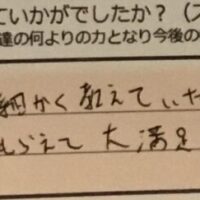 ていかがでしたか？（ス
達の何よりの力となり今後の
細かく教えていた
もらえて大満足